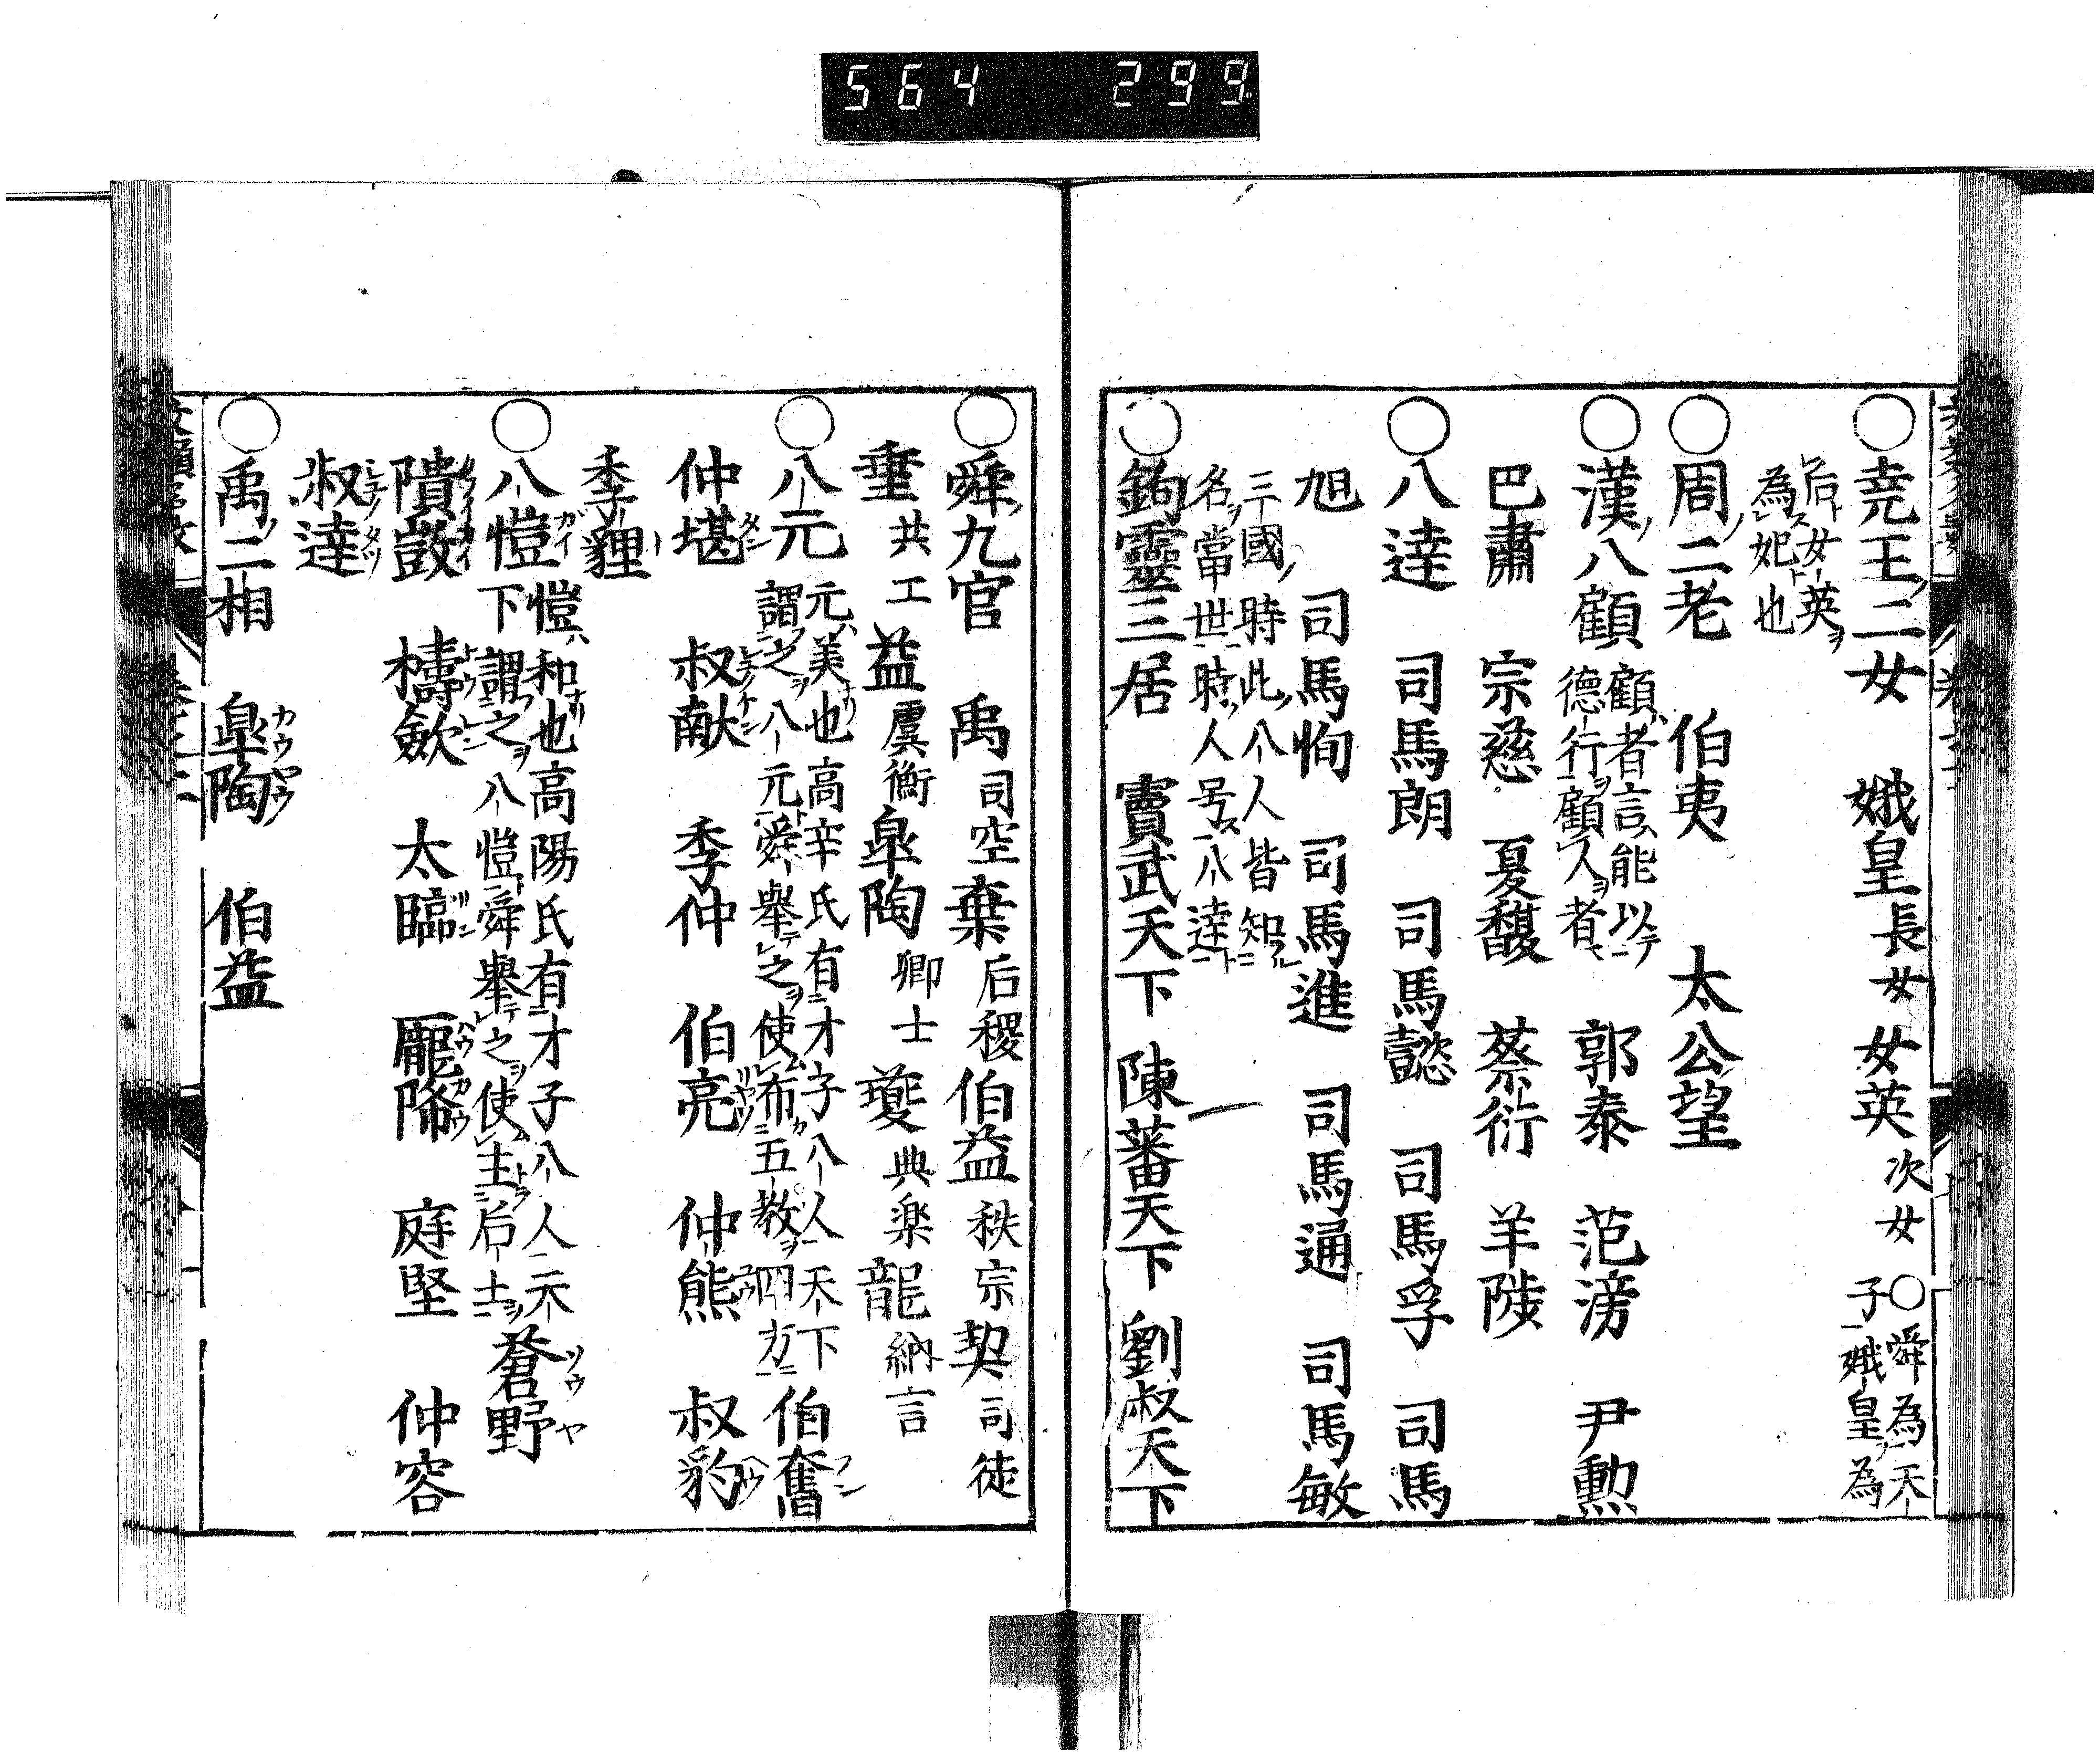 564 299
○堯王二女 娥皇長女 女英次女 ○舜為天子娥皇為
后女英為妃也
○周二老 伯夷 太公望
○漢八顧 顧者言能以德行顧人者 郭泰 范滂 尹勲
巴肅 宗慈 夏馥 蔡衍 羊陟
○八達 司馬朗 司馬懿 司馬孚 司馬
旭 司馬恂 司馬進 司馬通 司馬敏
三國時此八人皆知名當世時人号八達
○鉤靈三居 竇武天下 陳蕃天下 劉叔天下
○舜九官 禹司空 棄后稷 伯益秩宗 契司徒
垂共工 益虞衡 皐陶卿士 夔典楽 龍納言
○八元 元美也高辛氏有才子八人天下謂之八元舜舉之使布五教四方 伯奮
仲堪 叔献 季仲 伯亮 仲熊 叔豹
季貍
○八愷 愷和也高陽氏有才子八人天下謂之八愷舜舉之使主后土 蒼野
隤敳 檮歛 太臨 厖降 庭堅 仲容
叔達
○禹二相 皐陶 伯益